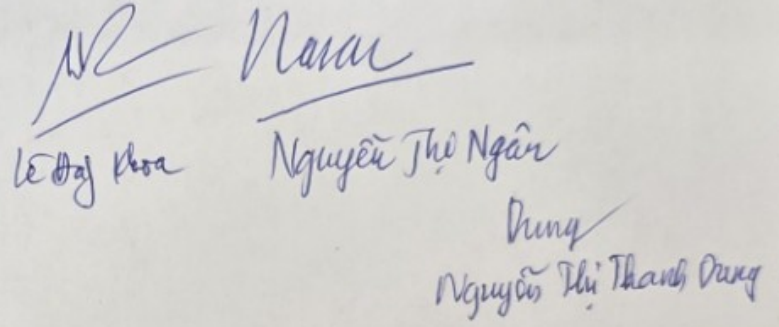 Lê Huy Khoa
Nguyễn Thị Ngân
Dung
Nguyễn Thị Thanh Dung